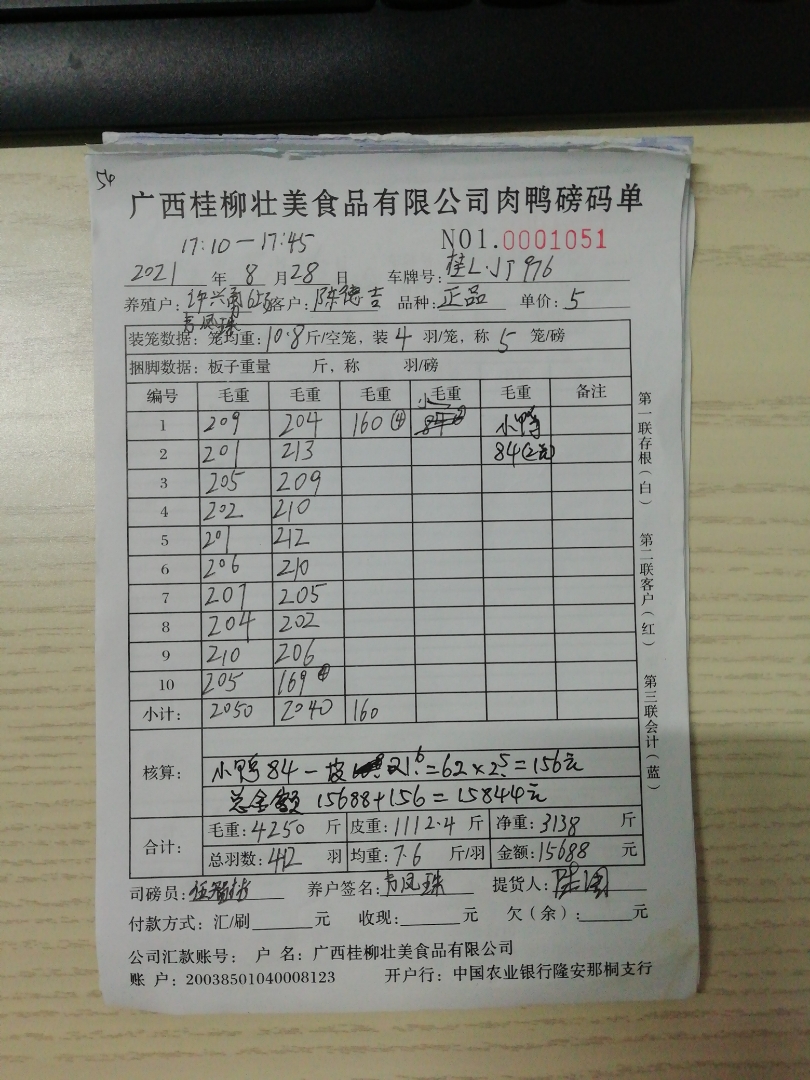 54
广西桂柳壮美食品有限公司肉鸭磅码单
17:10-17:45 NO1.0001051
2021年8月28日 车牌号:桂L·JJ976
养殖户:许兴 客户:陈德吉 品种:正品 单价:5
韦凤珠
装笼数据:笼均重:10.8斤/空笼,装4羽/笼,称5笼/磅
捆脚数据:板子重量 斤,称 羽/磅
编号 毛重 毛重 毛重 小毛重 毛重 备注
1 209 204 160④ 小鸭
2 201 213 84(2元)
3 205 209
4 202 210
5 201 212
6 206 210
7 207 205
8 204 202
9 210 206
10 205 169④
小计: 2050 2040 160
核算:
小鸭84-皮21.6=62×2.5=156元
总金额 15688+156=15844元
合计: 毛重:4250斤 皮重:1112.4斤 净重:3138斤
总羽数:412羽 均重:7.6斤/羽 金额:15688元
司磅员: 养户签名:韦凤珠 提货人:
付款方式:汇/刷 元 收现: 元 欠(余): 元
公司汇款账号: 户 名:广西桂柳壮美食品有限公司
账 户:20038501040008123 开户行:中国农业银行隆安那桐支行
第一联存根(白) 第二联客户(红) 第三联会计(蓝)